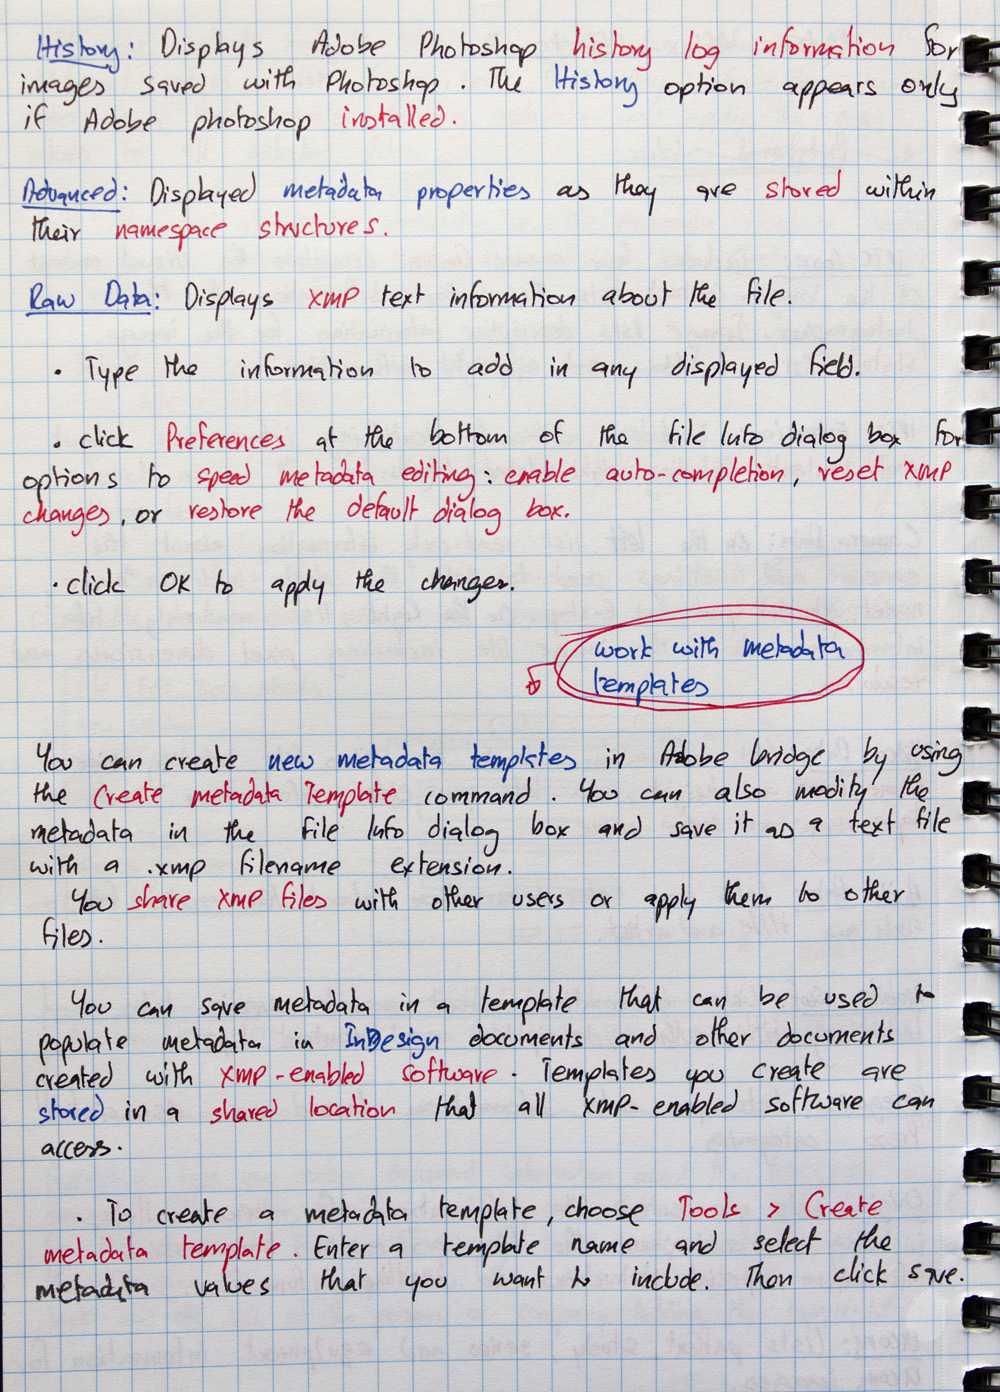 History: Displays Adobe Photoshop history log information for
images saved with Photoshop. The History option appears only
if Adobe photoshop installed.
Advanced: Displayed metadata properties as they are stored within
their namespace structures.
Raw Data: Displays XMP text information about the file.
• Type the information to add in any displayed field.
• click Preferences at the bottom of the file Info dialog box for
options to speed metadata editing: enable auto-completion, reset XMP
changes, or restore the default dialog box.
• click OK to apply the changes.
work with metadata
templates
You can create new metadata templates in Adobe bridge by using
the Create metadata Template command. You can also modify the
metadata in the File Info dialog box and save it as a text file
with a .xmp filename extension.
You share XMP files with other users or apply them to other
files.
You can save metadata in a template that can be used to
populate metadata in InDesign documents and other documents
created with XMP-enabled software. Templates you create are
stored in a shared location that all XMP-enabled software can
access.
• To create a metadata template, choose Tools > Create
metadata template. Enter a template name and select the
metadata values that you want to include. Then click save.